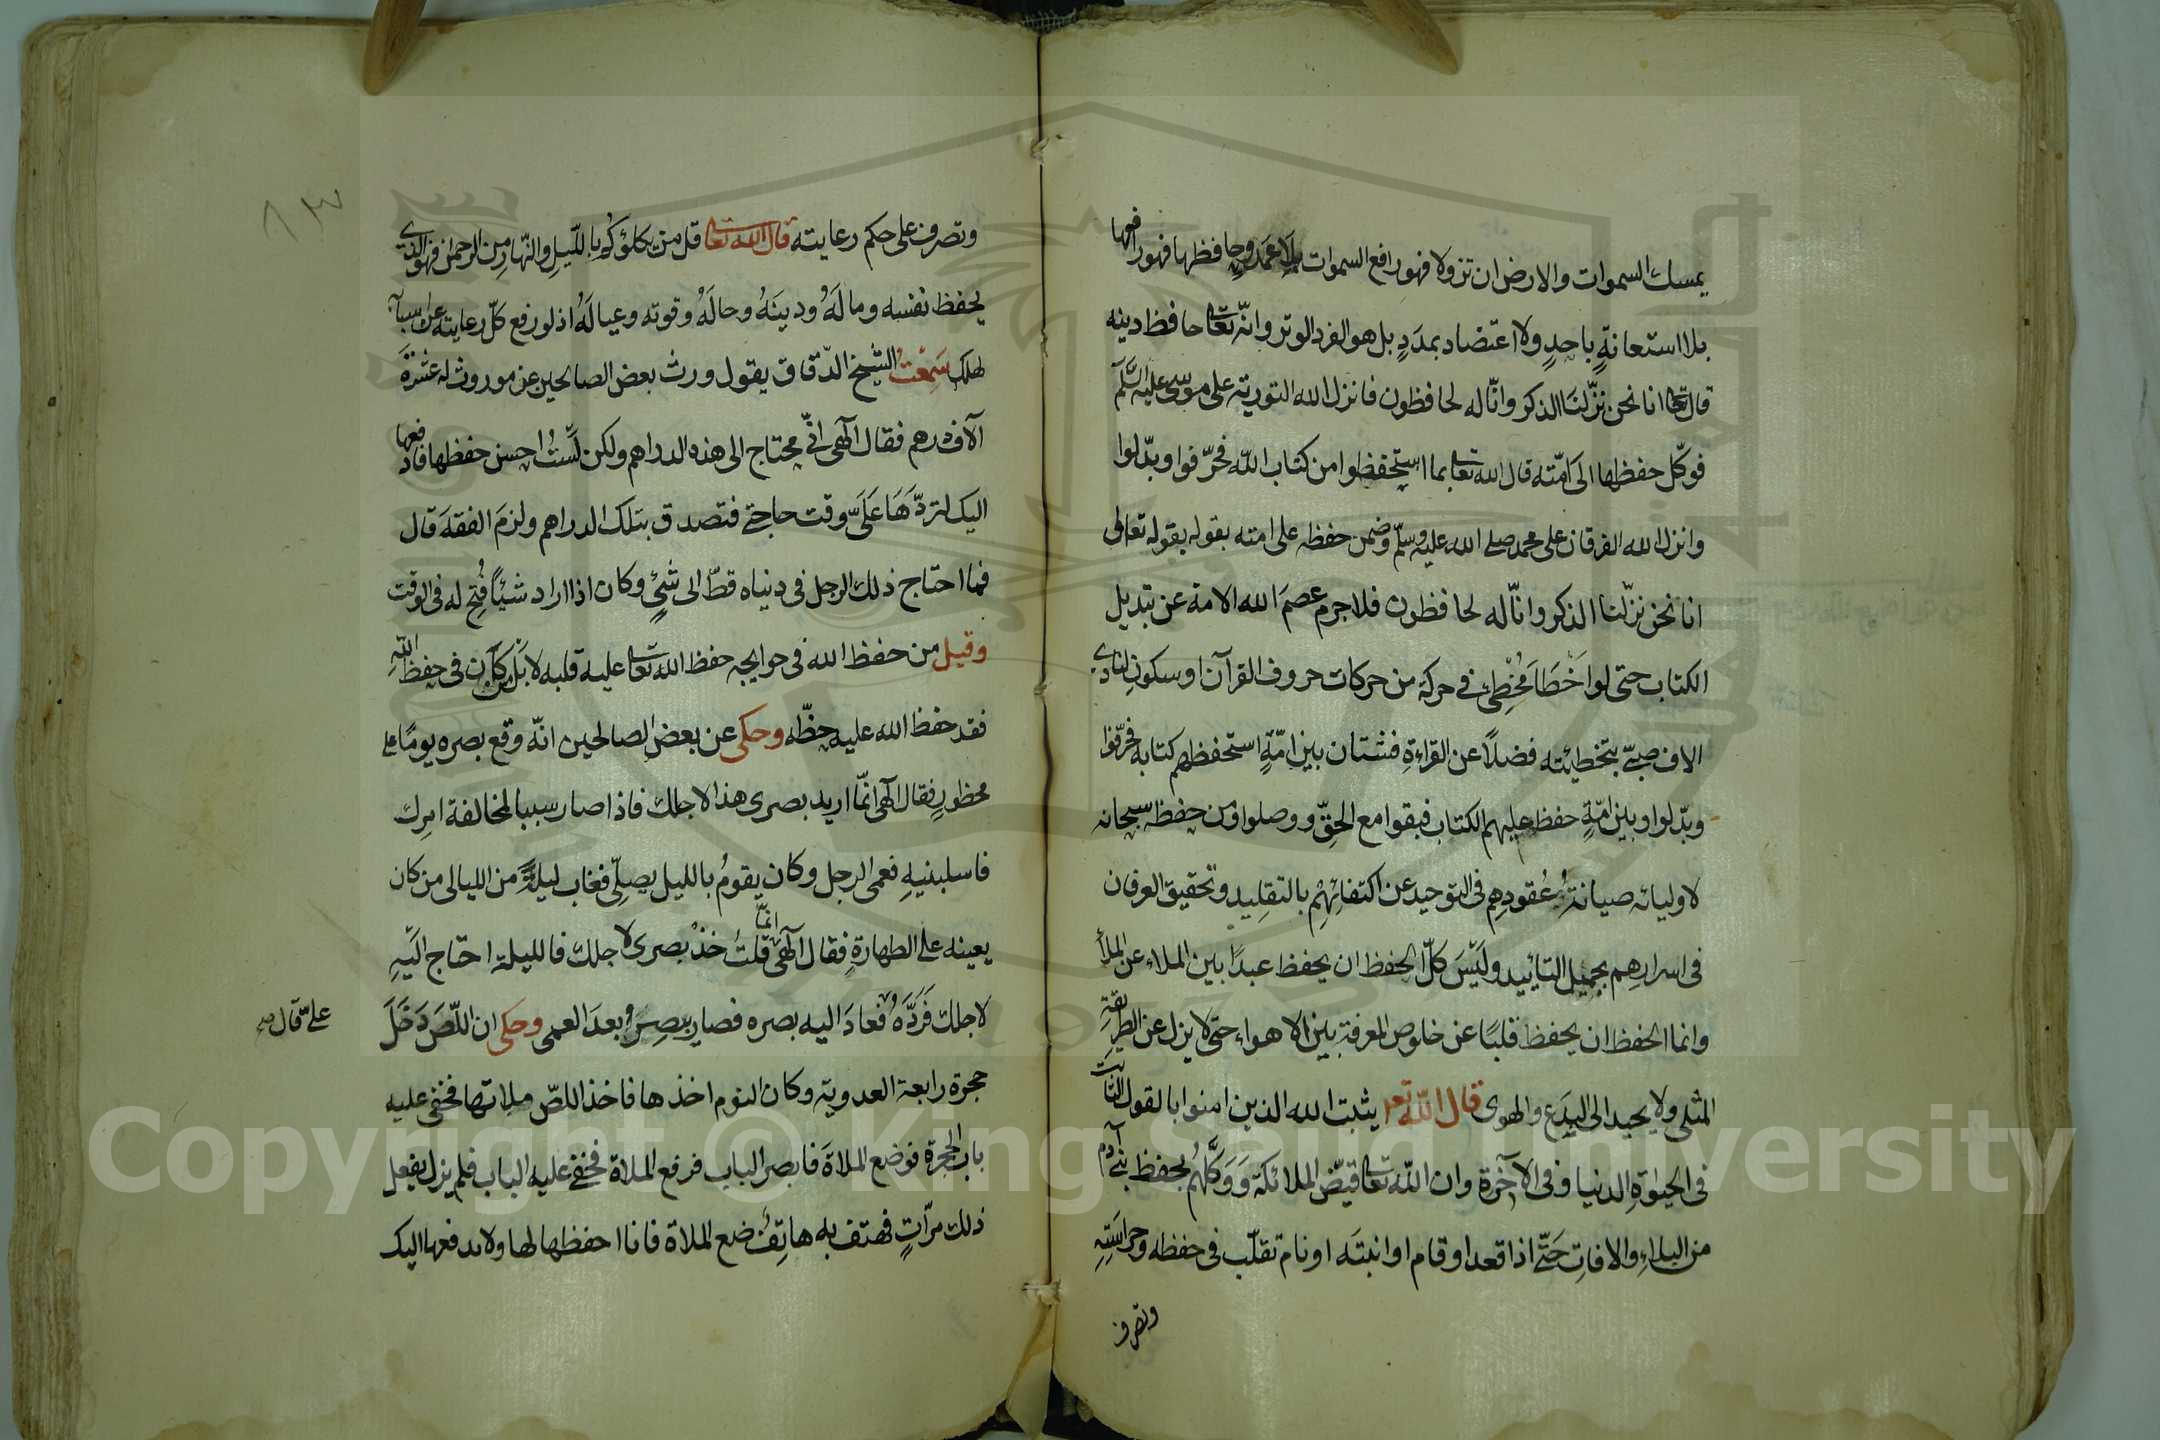 يمسك السموات والارض ان تزولا فهو رافع السموات بلا عمد وحافظها فهو رافعها
بلا استعانة باحد ولا اعتضاد بمدد بل هو الفرد الوتر وانه تعالى حافظ دينه
قال تعا انا نحن نزلنا الذكر وانا له لحافظون فانزل الله التورية على موسى عليه السلم
فوكل حفظها الى امته قال الله تعا بما استحفظوا من كتاب الله فحرفوا وبدلوا
وانزل الله الفرقان على محمد صلى الله عليه وسلم وضمن حفظه على امته بقوله بقوله تعالى
انا نحن نزلنا الذكر وانا له لحافظون فلا جرم عصم الله الامة عن تبديل
الكتاب حتى لو اخطا مخطئ في حركة من حركات حروف القرآن او سكون لنادى
الاف صبي بتخطيئته فضلا عن القراءة فشتان بين امة استحفظهم كتابه فحرفوا
وبدلوا وبين امة حفظ عليهم الكتاب فبقوا مع الحق ووصلوا ومن حفظه سبحانه
لاوليائه صيانة عقودهم في التوحيد عن اكتفائهم بالتقليد وتحقيق العرفان
في اسرارهم بجميل التاييد وليس كل الحفظ ان يحفظ عبدا بين الملاء عن الملأ
وانما الحفظ ان يحفظ قلبا عن خلوص المعرفة بين الاهواء حتى لا يزل عن الطريقة
المثلى ولا يحيد الى البدع والهوى قال الله تعا يثبت الله الذين امنوا بالقول الثابت
في الحيوة الدنيا وفي الآخرة وان الله تعا قيض الملائكة ووكلهم بحفظ بني آدم
من البلاء والافات حتى اذا قعد او قام او انبته او نام تقلب في حفظه وحراسته
وتصرف
٨٣
وتصرف على حكم رعايته قال الله تعا قل من يكلؤكم بالليل والنهار من الرحمن فهو الذي
يحفظ نفسه وماله ودينه وحاله وقوته وعياله اذ لو رفع كل رعايته عن اسبابه
لهلك سمعت الشيخ الدقاق يقول ورث بعض الصالحين عن موروث له عشرة
آلاف درهم فقال الهى اني محتاج الى هذه الدراهم ولكن لست احسن حفظها فادفعها
اليك لتردها على وقت حاجتي فتصدق بتلك الدراهم ولزم الفقه قال
فما احتاج ذلك الرجل في دنياه قط الى شئ وكان اذا اراد شيئا فتح له في الوقت
وقيل من حفظ الله في حوايجه حفظ الله تعا عليه قلبه لا بل من كان في حفظ الله
فقد حفظ الله عليه حظه وحكى عن بعض الصالحين انه وقع بصره يوما على
محظور فقال الهى انما اريد بصرى هذا لاجلك فاذا صار سببا لمخالفة امرك
فاسلبنيه فعمى الرجل وكان يقوم بالليل يصلي فغاب ليلة من الليالى من كان
يعينه على الطهارة فقال الهى انما قلت خذ بصرى لاجلك فالليلة احتاج اليه
لاجلك فرده فعاد اليه بصره فصار يبصر بعد العمى وحكى ان اللص دخل
على قال صح
حجرة رابعة العدوية وكان النوم اخذها فاخذ اللص ملاتها فخفى عليه
باب الحجرة فوضع الملاة فابصر الباب فرفع الملاة فخفى عليه الباب فلم يزل يفعل
ذلك مرات فهتف به هاتف ضع الملاة فانا احفظها لها ولا ندفعها اليك
Copyright © King Saud University